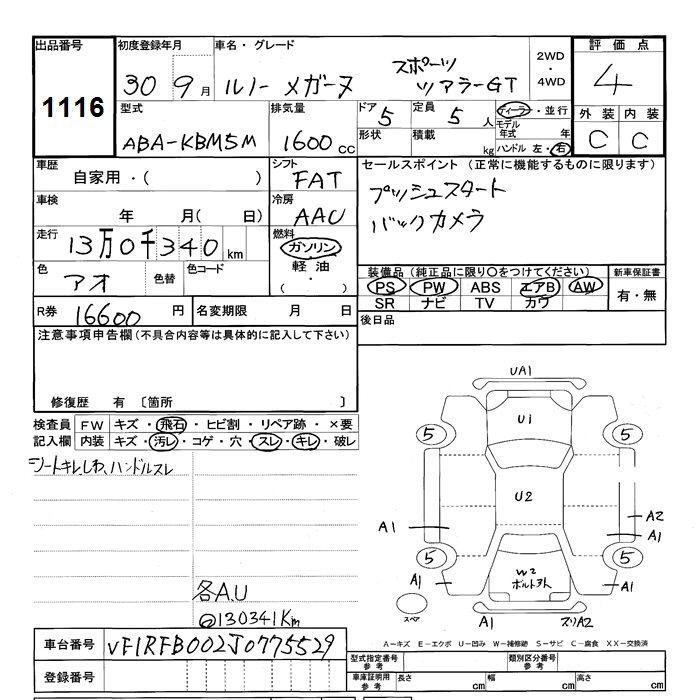 出品番号 初度登録年月 車名・グレード 2WD・4WD 評価点
1116 30 9月 ルノー メガーヌ スポーツ ツアラーGT 4
型式 排気量 ドア 定員 ディーラー・並行 外装 内装
ABA-KBM5M 1600cc 5 5人 モデル年式 年 C C
形状 積載 kg ハンドル 左・右
車歴 シフト セールスポイント(正常に機能するものに限ります)
自家用・( ) FAT プッシュスタート
車検 冷房 バックカメラ
年 月( 日) AAC
走行 13万0千340km 燃料 ガソリン
軽油・( )
色 アオ 色替 色コード 装備品(純正品に限り○をつけてください) 新車保証書
PS PW ABS エアB AW 有・無
SR ナビ TV カワ
R券 16600円 名変期限 月 日 後日品
注意事項申告欄(不具合内容等は具体的に記入して下さい)
修復歴 有 〔箇所 〕
検査員 FW キズ・飛石・ヒビ割・リペア跡・×要
記入欄 内装 キズ・汚レ・コゲ・穴・スレ・キレ・破レ
シートキレ、しわ、ハンドルスレ
UA1
U1
5 5
U2
A1 A2
A1
5 5
W2
ボルト外
A1 A1
スペア A1 スリA2
各A.U
@130341Km
A-キズ E-エクボ U-凹み W-補修跡 S-サビ C-腐食 XX-交換済
車台番号 VF1RFB002J0775529
型式指定番号 参考 類別区分番号 参考
登録番号 車庫証明用 参考 長さ cm 幅 cm 高さ cm